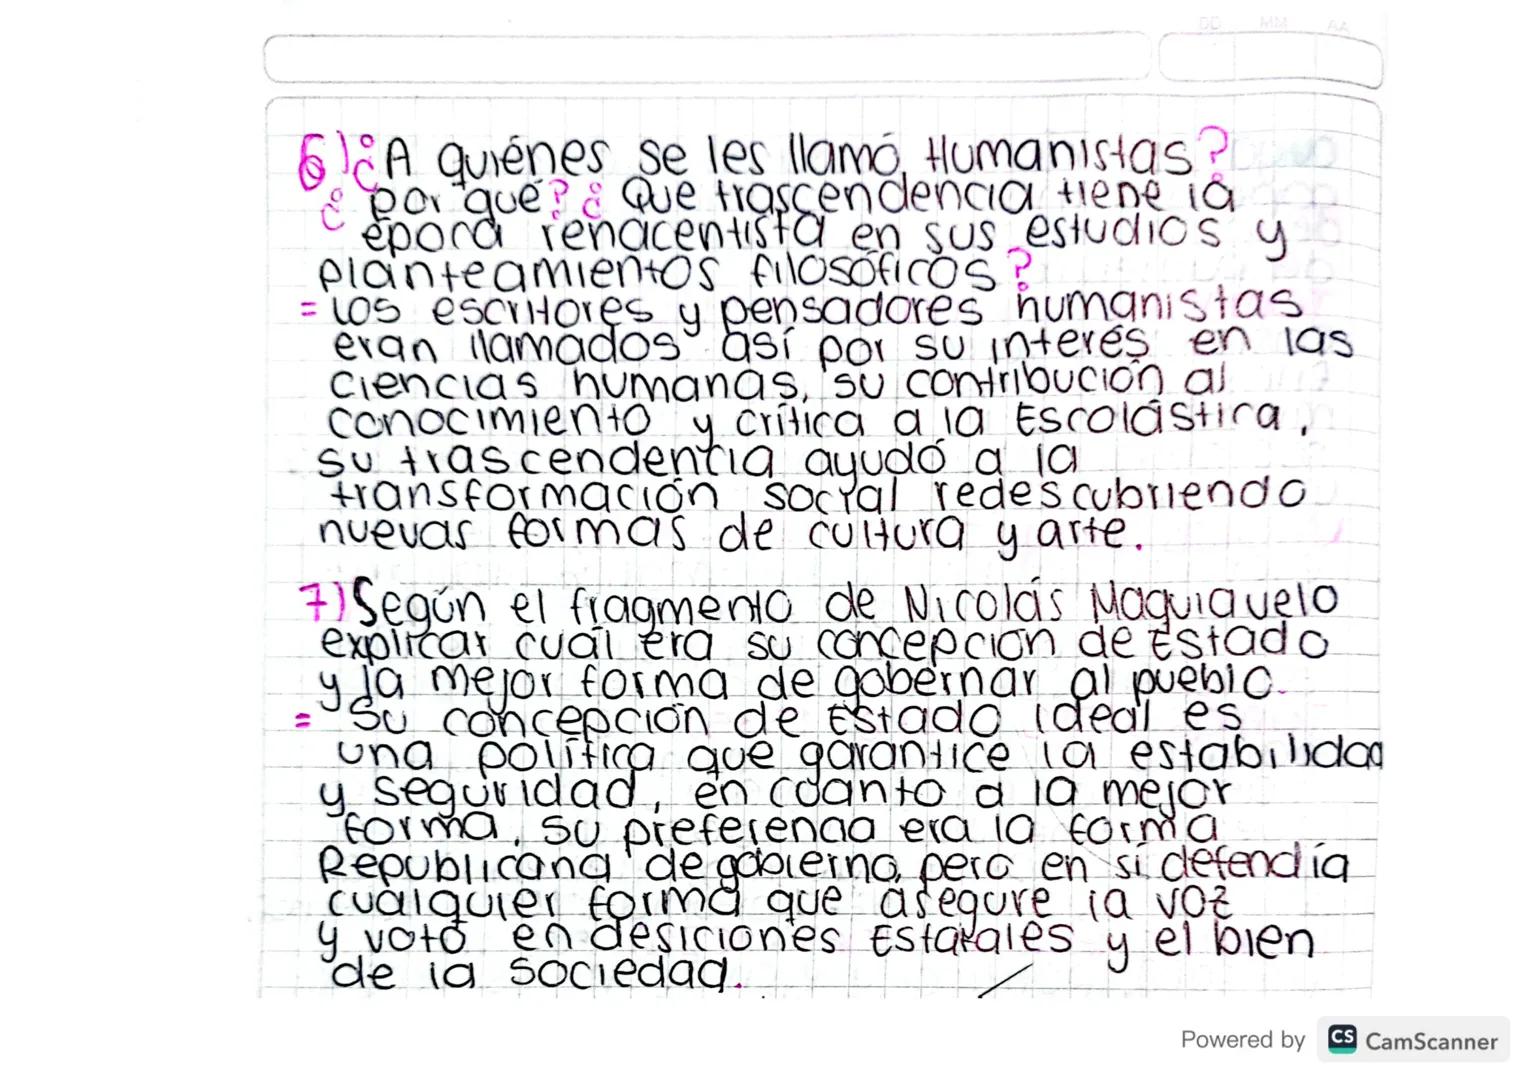 DD MM AA
6) ¿A quiénes se les llamó Humanistas?
¿por qué? ¿Que trascendencia tiene la
época renacentista en sus estudios y
planteamientos filosóficos?
= Los escritores y pensadores humanistas
eran llamados así por su interés en las
ciencias humanas, su contribución al
conocimiento y crítica a la Escolástica,
su trascendentia ayudó a la
transformación social redescubriendo
nuevas formas de cultura y arte.
7) Según el fragmento de Nicolás Maquiavelo
explicar cuál era su concepción de Estado
y la mejor forma de gobernar al pueblo.
= Su concepción de Estado ideal es
una política que garantice la estabilidad
y seguridad, en cuanto a la mejor
forma, su preferencia era la forma
Republicana de gobierno, pero en sí defendía
cualquier forma que asegure la voz
y voto en desiciones Estatales y el bien
de la sociedad.
Powered by CS CamScanner